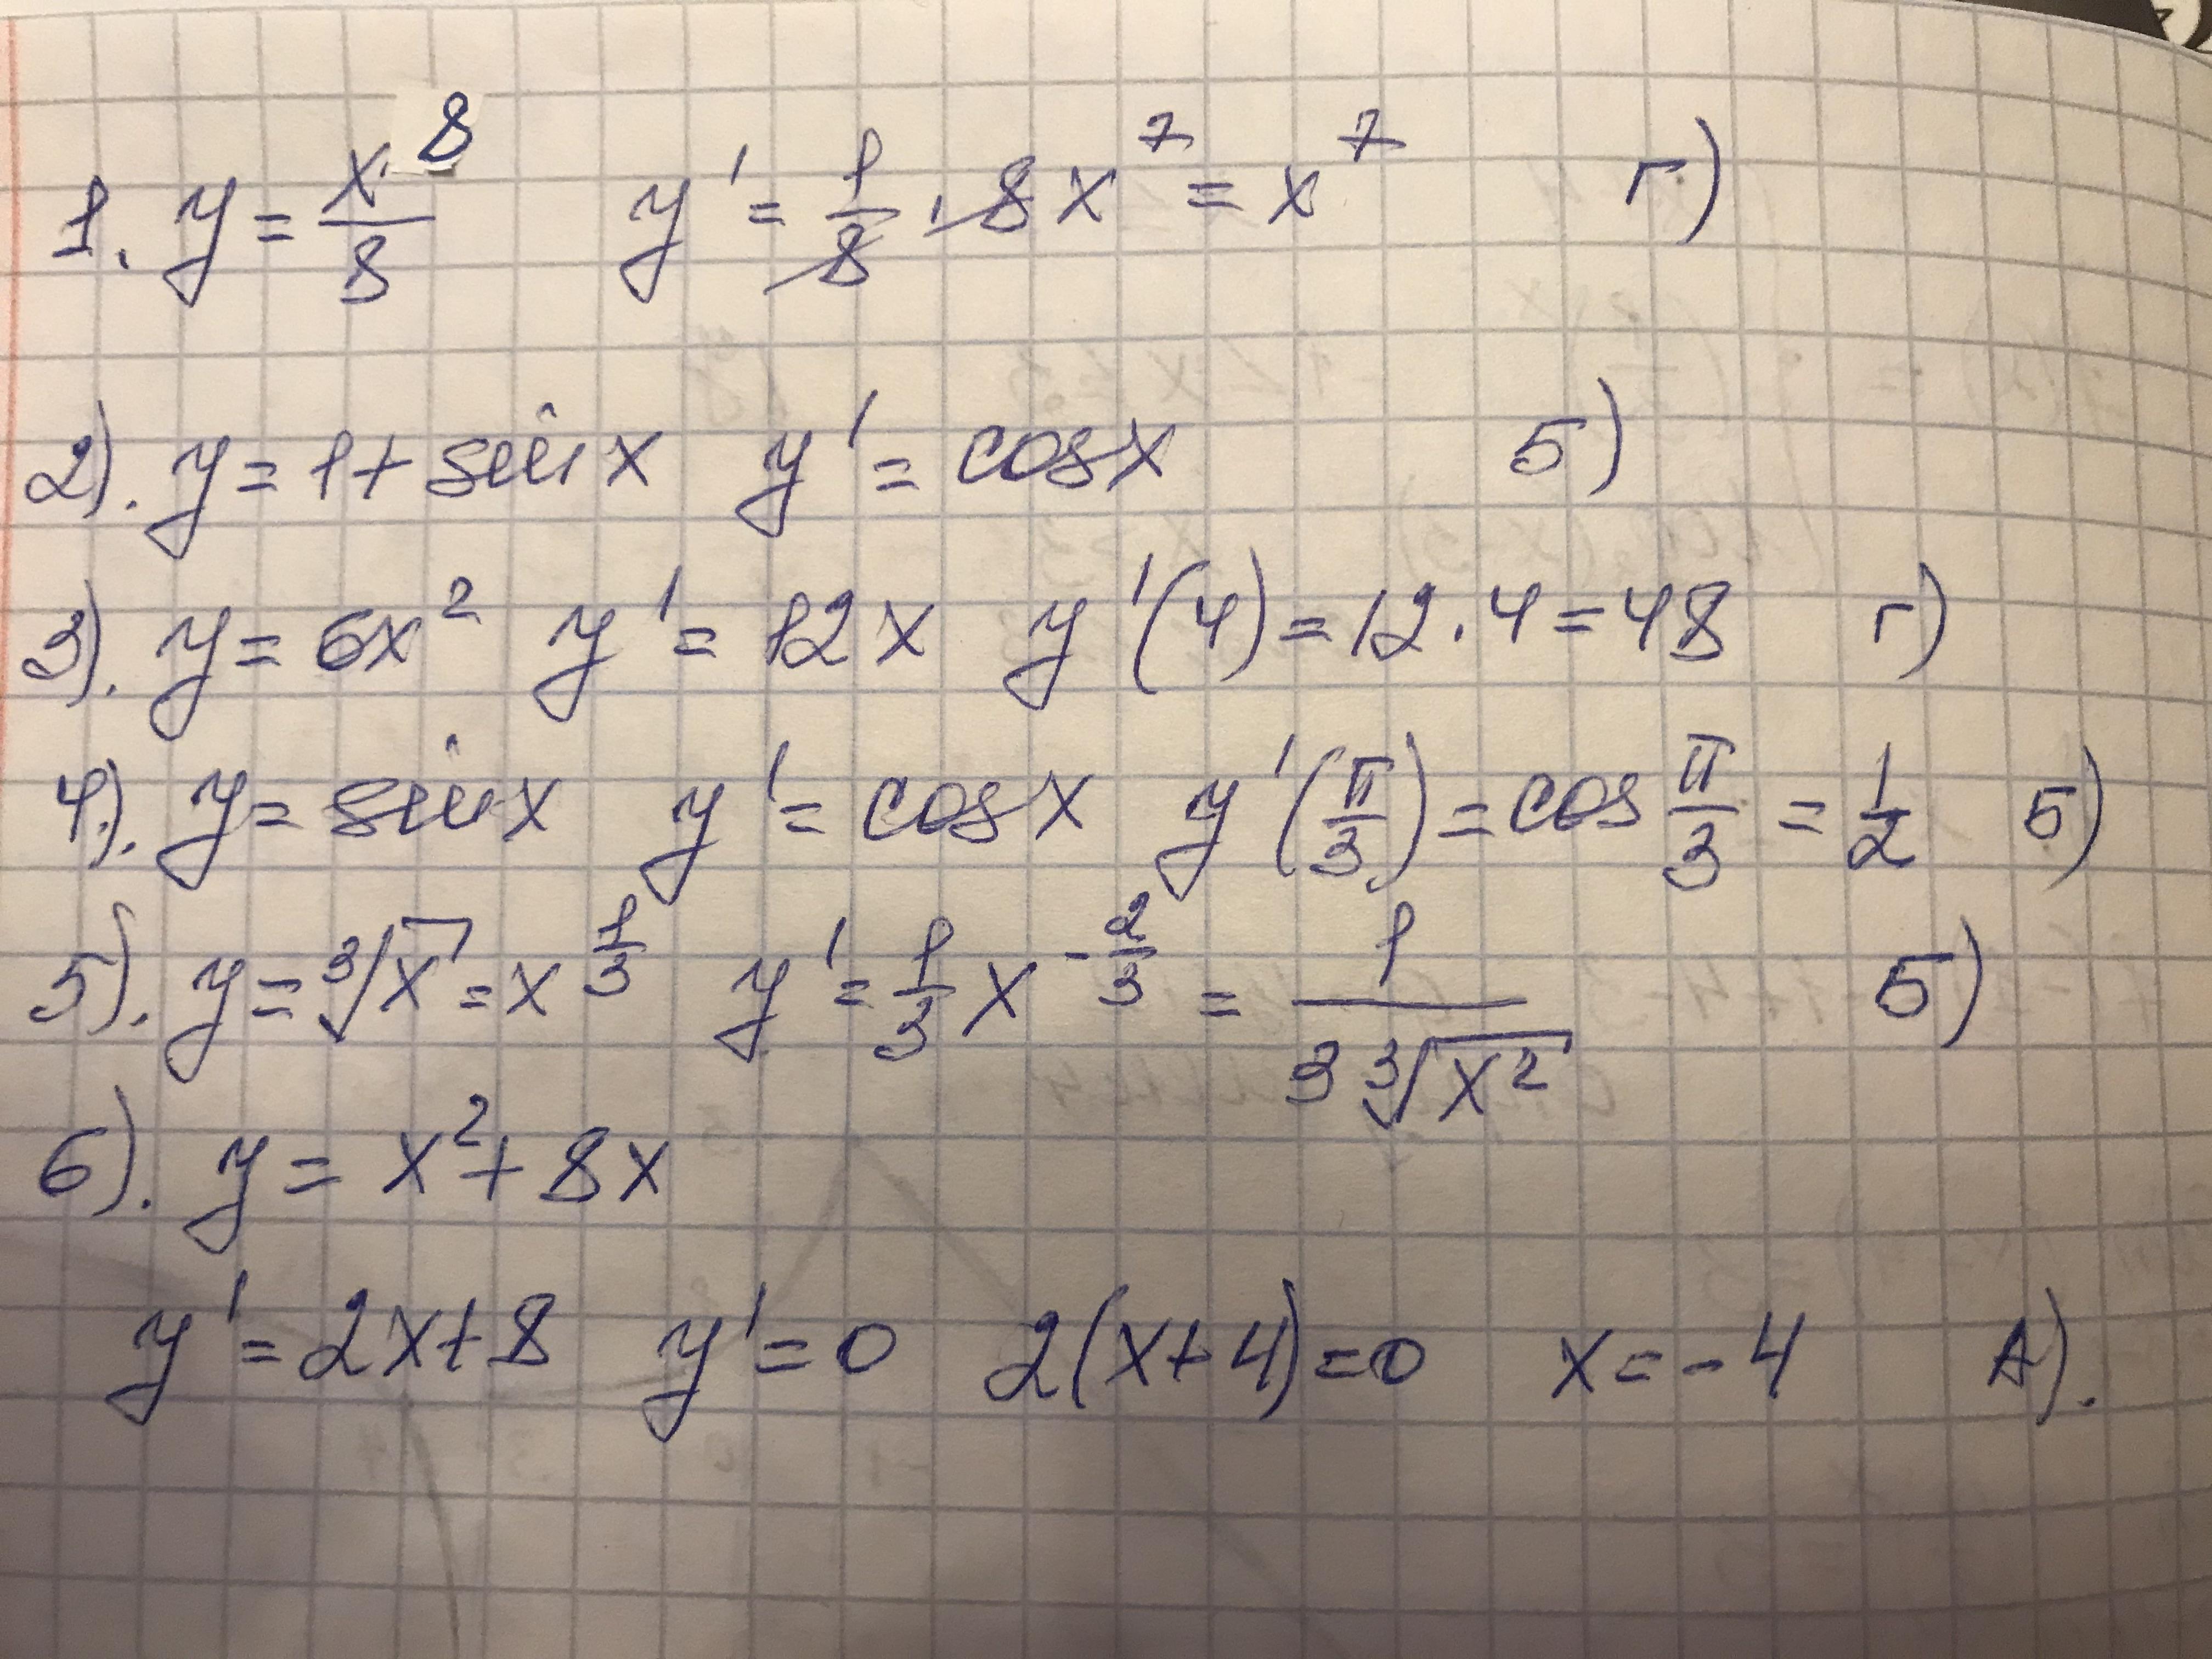 1. y = x⁸/8 y' = 1/8 · 8x⁷ = x⁷ г)
2). y = 1 + sin x y' = cos x Б)
3). y = 6x² y' = 12x y'(4) = 12 · 4 = 48 г)
4). y = sin x y' = cos x y'(π/3) = cos π/3 = 1/2 Б)
5). y = ³√x = x^(1/3) y' = 1/3 x^(-2/3) = 1/(3 ³√x²) Б)
6). y = x² + 8x
y' = 2x + 8 y' = 0 2(x + 4) = 0 x = -4 А).